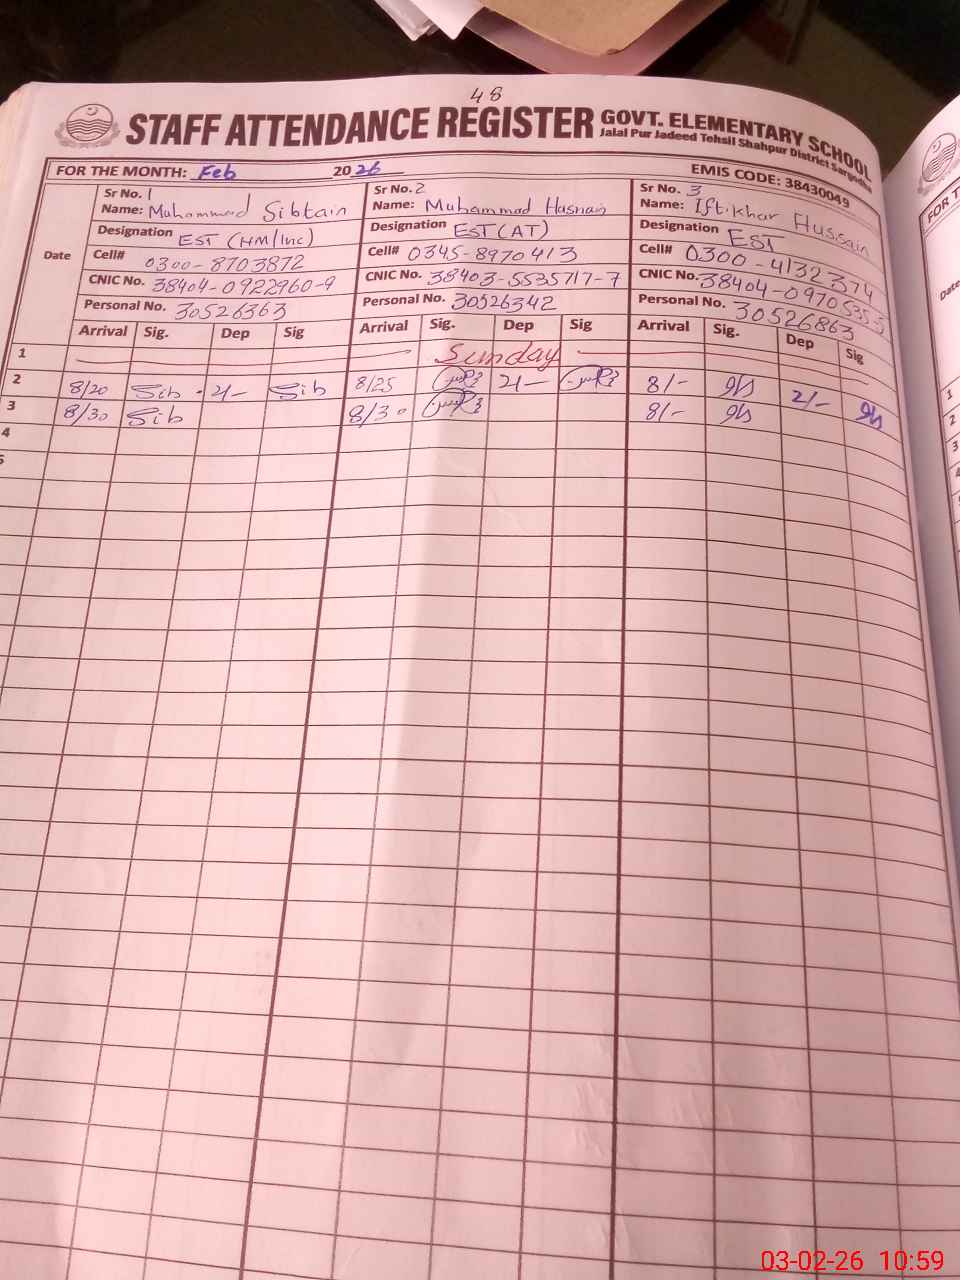 48
STAFF ATTENDANCE REGISTER GOVT. ELEMENTARY SCHOOL
Jalal Pur Jadeed Tehsil Shahpur District Sargodha
FOR THE MONTH: Feb 2026 EMIS CODE: 38430049
Sr No. 1 Sr No. 2 Sr No. 3
Name: Muhammad Sibtain Name: Muhammad Hasnain Name: Iftikhar Hussain
Designation EST (HM/Inc) Designation EST (AT) Designation EST
Date Cell# 0300-8703872 Cell# 0345-8970413 Cell# 0300-4132374
CNIC No. 38404-0922960-9 CNIC No. 38403-5535717-7 CNIC No. 38404-0970535-5
Personal No. 30526363 Personal No. 30526342 Personal No. 30526863
Arrival Sig. Dep Sig Arrival Sig. Dep Sig Arrival Sig. Dep Sig
1 Sunday
2 8/20 Sib 2/- Sib 8/25 2/- 8/- 2/-
3 8/30 Sib 8/30 8/-
4
5
FOR T
Date
1
2
3
4
03-02-26 10:59